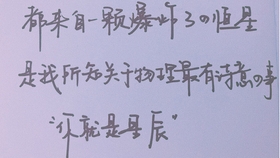 都来自一颗爆炸了的恒星
是我所知关于物理最有诗意的事
"你就是星辰"